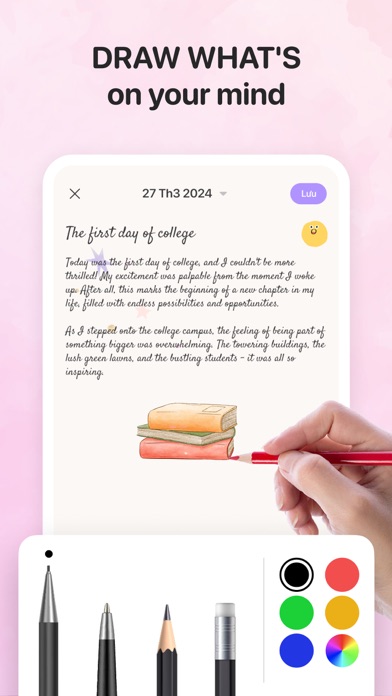 DRAW WHAT'S
on your mind
27 Th3 2024
Lưu
The first day of college
Today was the first day of college, and I couldn't be more
thrilled! My excitement was palpable from the moment I woke
up. After all, this marks the beginning of a new chapter in my
life, filled with endless possibilities and opportunities.
As I stepped onto the college campus, the feeling of being part of
something bigger was overwhelming. The towering buildings, the
lush green lawns, and the bustling students – it was all so
inspiring.